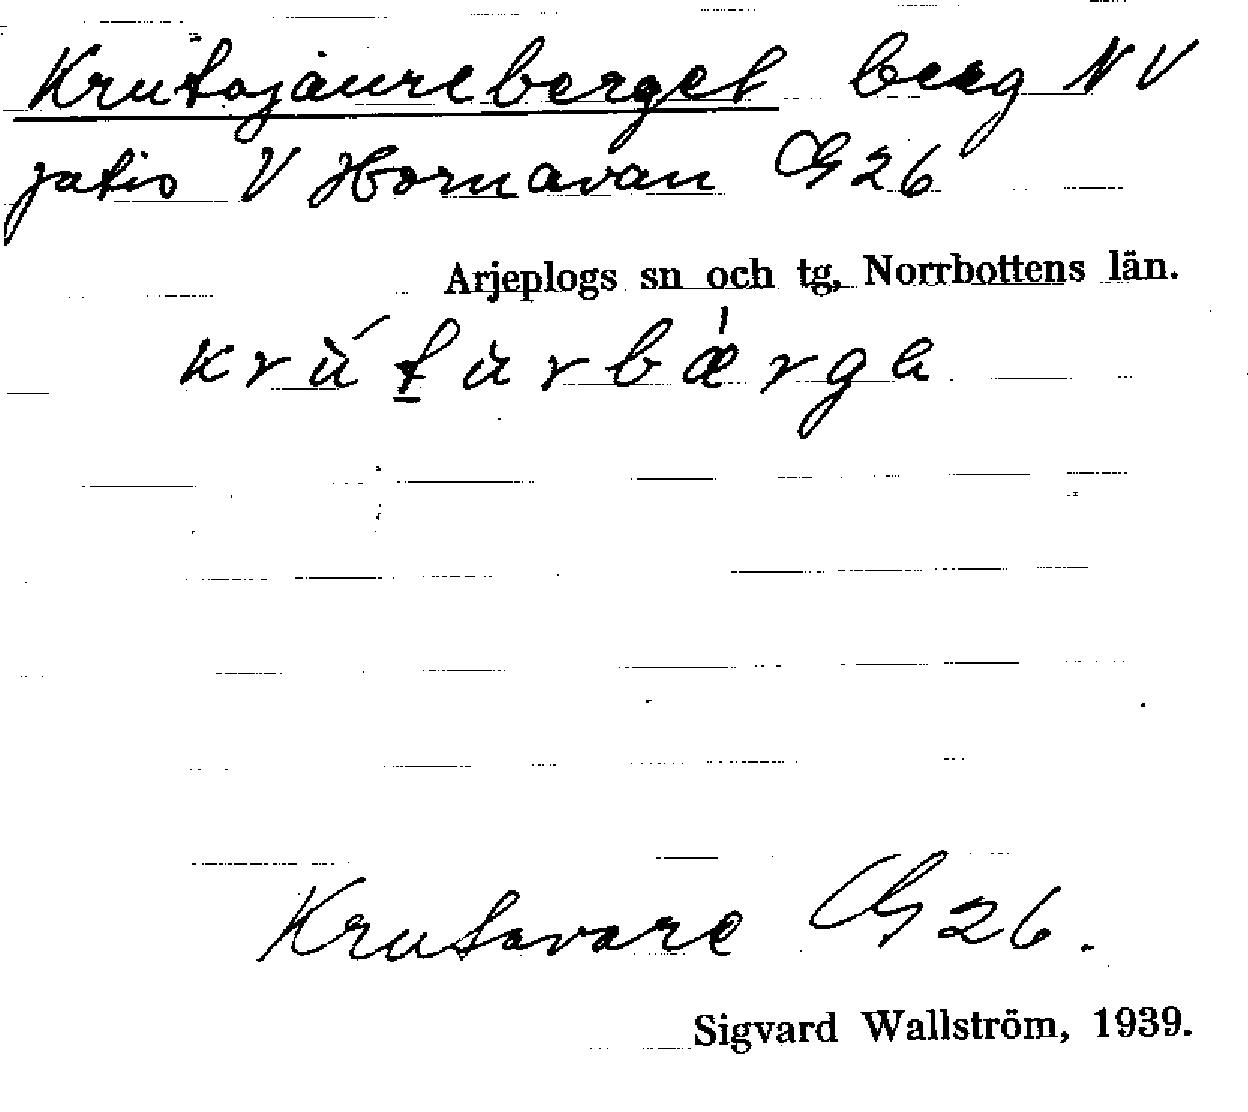 Krutojaureberget berg NV
Jutis V Hornavan Gb 26
Arjeplogs sn och tg, Norrbottens län.
krù´tu̇rbæ̍rga
Krutavare Gb 26.
Sigvard Wallström, 1939.